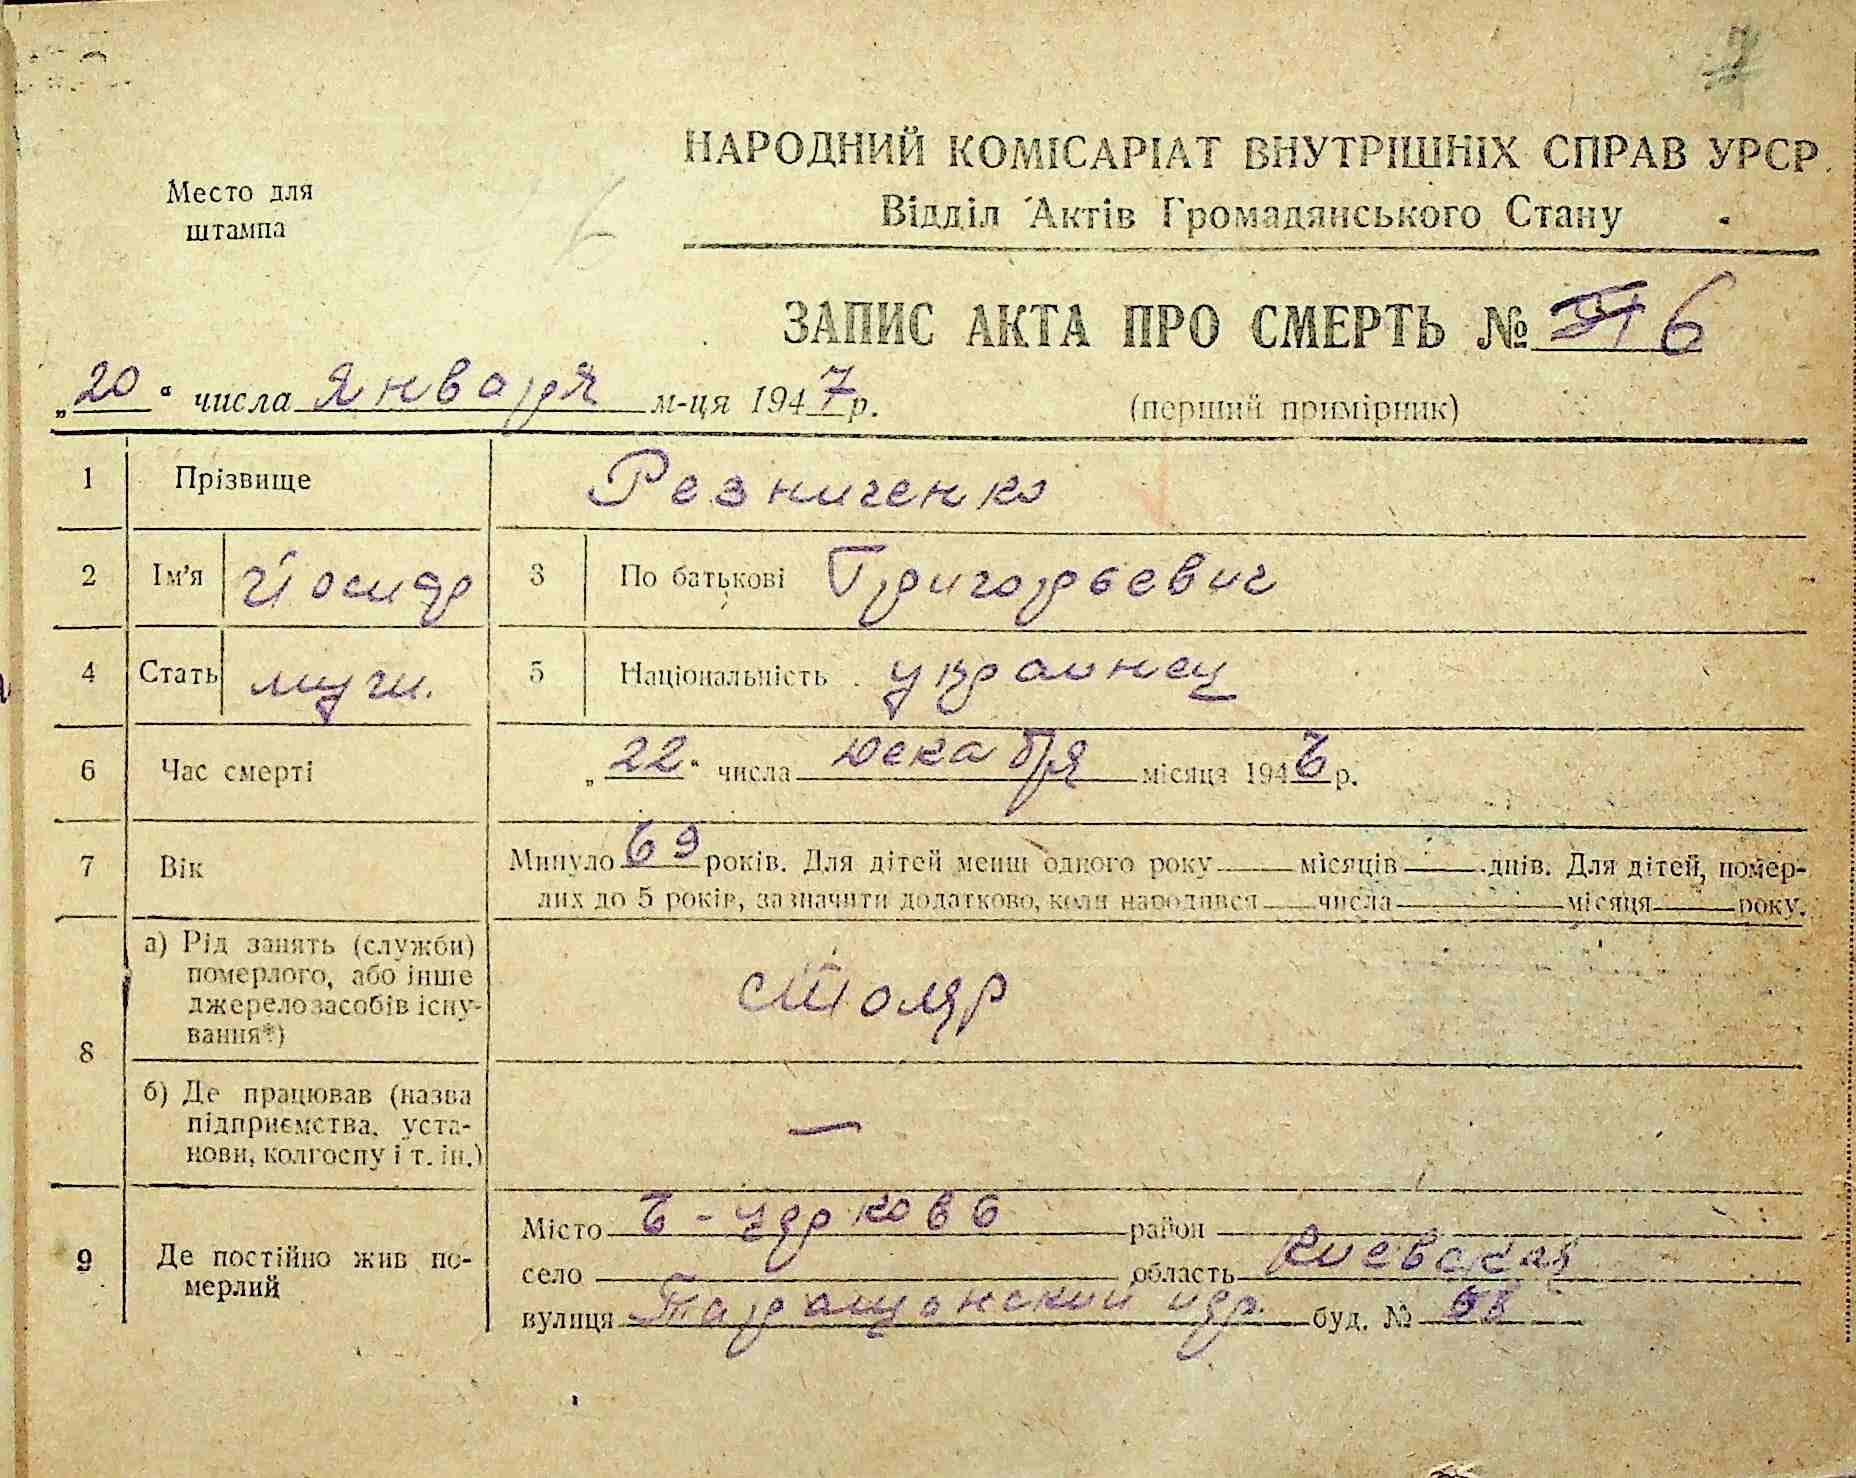 НАРОДНИЙ КОМІСАРІАТ ВНУТРІШНІХ СПРАВ УРСР
Відділ Актів Громадянського Стану
Место для
штампа
ЗАПИС АКТА ПРО СМЕРТЬ № 6
„20“ числа Января м-ця 1947 р. (перший примірник)
1 Прізвище Резниченко
2 Ім'я Йосиф 3 По батькові Григорьевич
4 Стать муж. 5 Національність украинец
6 Час смерті „22“ числа декабря місяця 1946 р.
7 Вік Минуло 69 років. Для дітей менш одного року місяців днів. Для дітей, помер-
лих до 5 років, зазначити додатково, коли народився числа місяця року.
8 а) Рід занять (служби)
померлого, або інше
джерело засобів існу-
вання*) столяр
б) Де працював (назва
підприємства, уста-
нови, колгоспу і т. ін.) —
9 Де постійно жив по-
мерлий
Місто Б-Церковь район
село область Киевская
вулиця Таращанский пер. буд. №